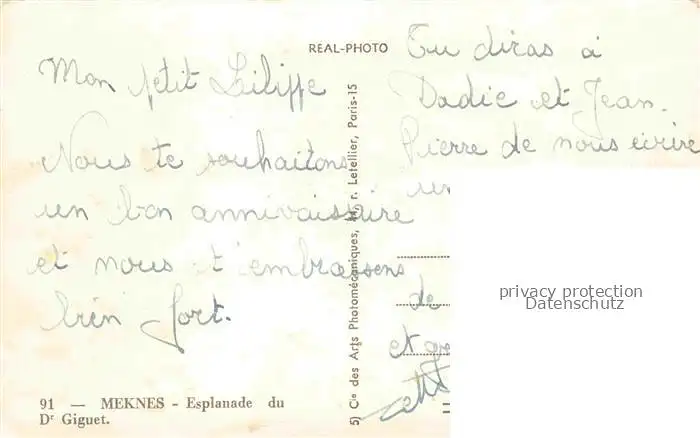 REAL-PHOTO
Mon petit Lilippe
Nous te souhaitons
un bon annivaissaire
et nous t'embrassens
bien fort.
Tu diras a
Dadie et Jean.
Pierre de nous ecrire
un
de
et
privacy protection
Datenschutz
5) Cie des Arts Photomécaniques, r. Letellier, Paris-15
91 — MEKNES - Esplanade du
Dr Giguet.